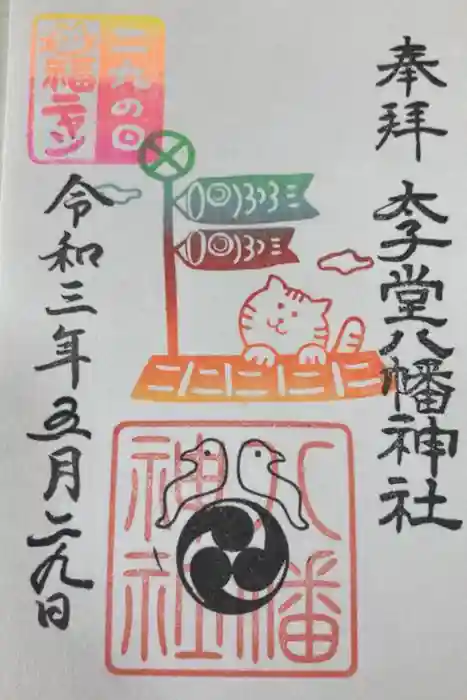 奉拝
太子堂八幡神社
二九の日
招福ニャン
令和三年五月二九日
八幡
神社